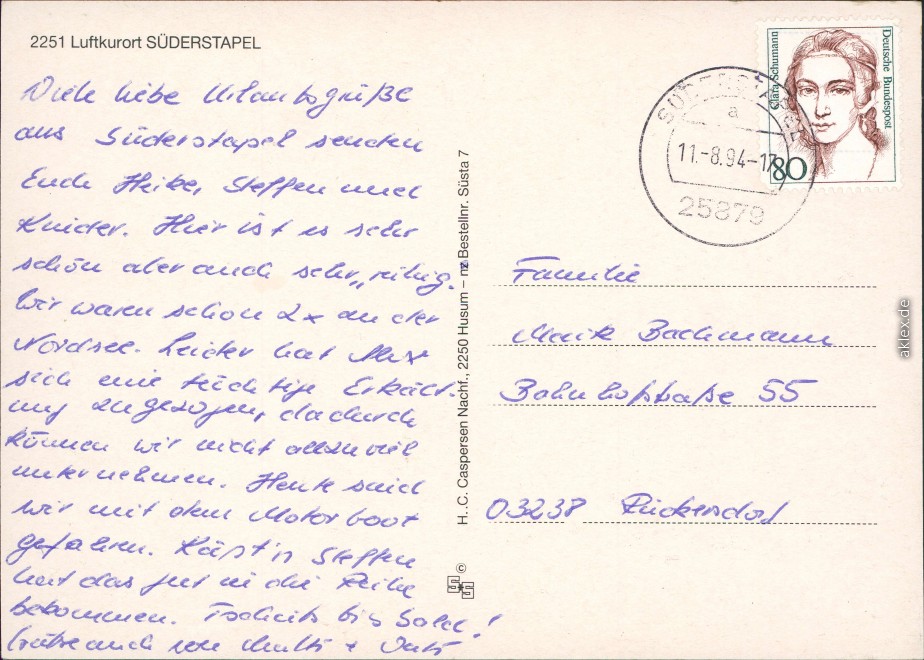 2251 Luftkurort SÜDERSTAPEL
Viele liebe Urlaubsgrüße
aus Süderstapel senden
Euch Heike, Steffen und
Kinder. Hier ist es sehr
schön aber auch sehr „ruhig.
Wir waren schon 2x an der
Nordsee. Leider hat
sich eine tüchtige Erkält.
ung zugezogen, dadurch
können wir nicht allzuviel
unternehmen. Heute sind
wir mit dem Motorboot
gefahren. Käpt'n Steffen
hat das gut in die Reihe
bekommen. Tschüß bis bald!
Grüße auch von Mutti + Vati
H. C. Caspersen Nachf., 2250 Husum – nz Bestellnr. Süsta 7
©
SÜDERSTAPEL
a
11.-8.94-17
25879
Clara Schumann
Deutsche Bundespost
80
Familie
Maik Bachmann
Bahnhofstraße 55
03238 Rückersdorf
aklex.de